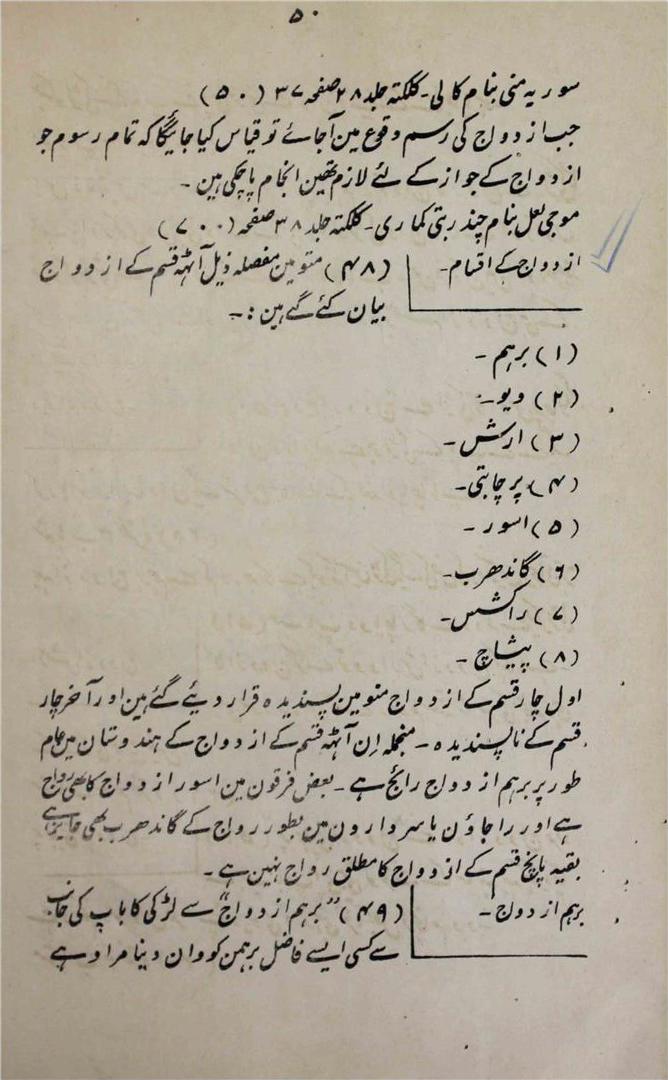 ۵۰
سوریہ منی بنام کالی۔ کلکتہ جلد ۲۸ صفحہ ۳۷ (۵۰)
جب ازدواج کی رسم وقوع مین آجائے تو قیاس کیا جائیگا کہ تمام رسوم جو
ازدواج کے جواز کے لئے لازم تھین انجام پاچکی ہین۔
موجی لعل بنام چندر بتی کماری۔ کلکتہ جلد ۳۸ صفحہ (۷۰۰)
ازدواج کے اقسام۔ (۴۸) منو مین مفصلہ ذیل آٹھہ قسم کے ازدواج
بیان کئے گے ہین:۔
(۱) برہم۔
(۲) ویو۔
(۳) ارش۔
(۴) پرچاپتی۔
(۵) اسور۔
(۶) گاندھرب۔
(۷) راکشس۔
(۸) پیشاچ۔
اول چار قسم کے ازدواج منو مین پسندیدہ قرار دیئے گئے ہین اور آخر چار
قسم کے ناپسندیدہ۔ منجملہ اِن آٹھہ قسم کے ازدواج کے ہندوستان مین عام
طور پر برہم ازدواج رائج ہے۔ بعض فرقون مین اسور ازدواج کا بھی رواج
ہے اور راجاؤن یا سردارون مین بطور رواج کے گاندھرب بھی جایز ہے
بقیہ پانچ قسم کے ازدواج کا مطلق رواج نہین ہے۔
برہم ازدواج۔ (۴۹) "برہم ازدواج" سے لڑکی کا باپ کی جانب
سے کسی ایسے فاضل برہمن کو دان دینا مراد ہے